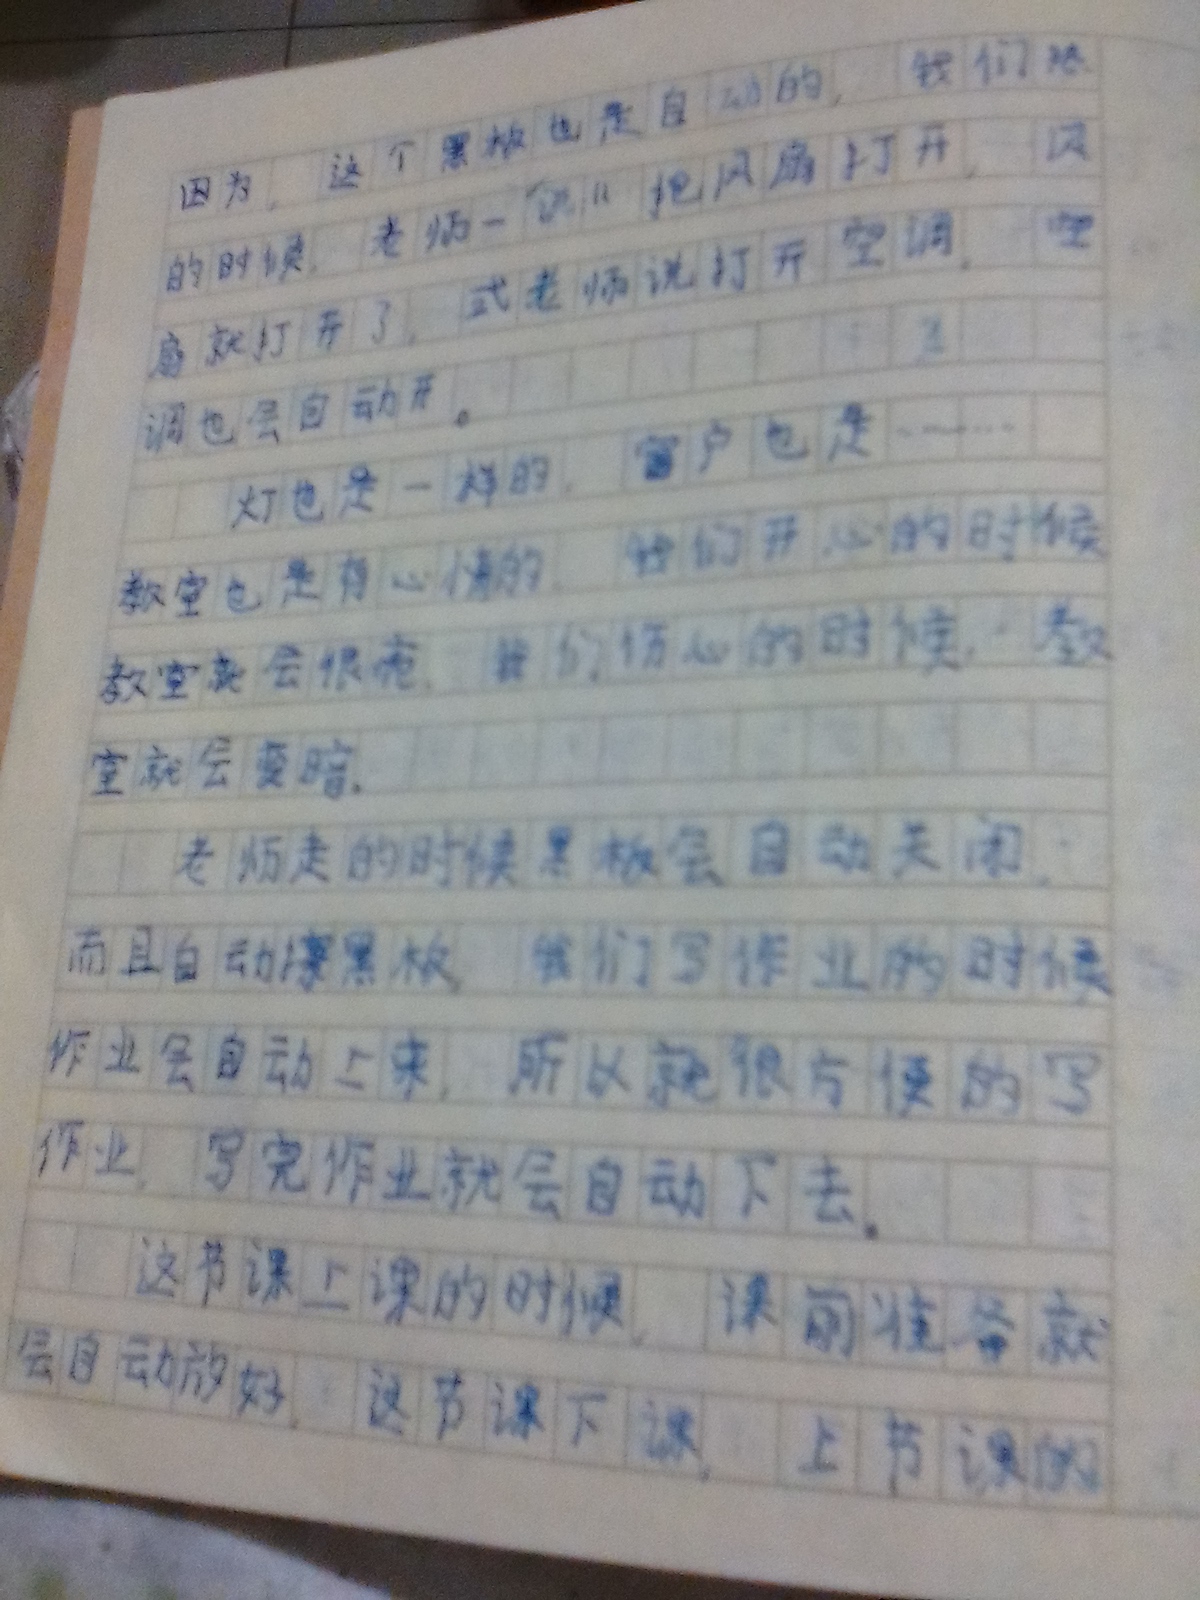 因为，这个黑板也是自动的，我们热
的时候，老师一说“把风扇打开，风
扇就打开了，或老师说打开空调，空
调也会自动开。
灯也是一样的，窗户也是……
教室也是有心情的，我们开心的时候
教室就会很亮，我们伤心的时候，教
室就会变暗。
老师走的时候黑板会自动关闭，
而且自动擦黑板，我们写作业的时候
作业会自动上来，所以就很方便的写
作业，写完作业就会自动下去。
这节课上课的时候，课前准备就
会自动放好，这节课下课，上节课的